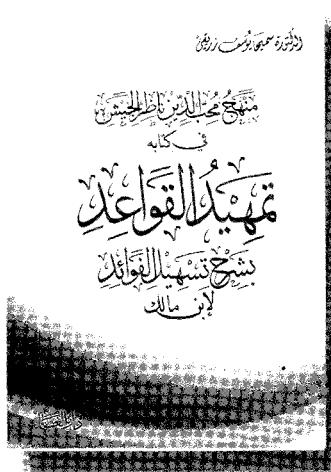 الدكتورة سميحة يوسف
منهج محب الدين ناظر الجيش
في كتابه
تمهيد القواعد
بشرح تسهيل الفوائد
لابن مالك